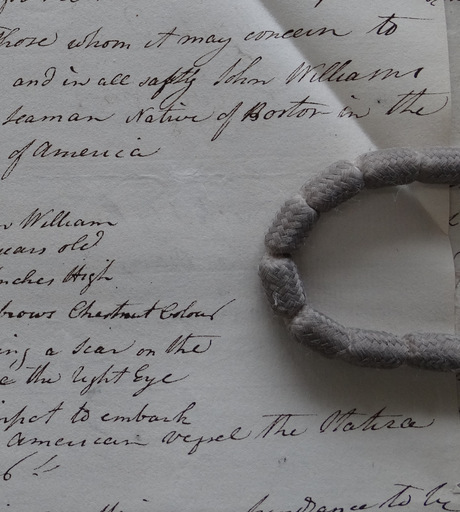 those whom it may concern to
and in all safety John Williams
Seaman Native of Boston in the
of America
William
years old
nches High
brows Chestnut Colour
ing a scar on the
the right Eye
to embark
American vessel the
6
to be